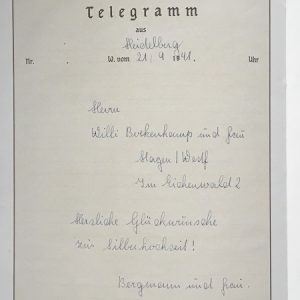 Telegramm
aus
Heidelberg
Nr. W. vom 21/4 1941. Uhr
Herrn
Willi Borkenhamp und Frau
Hagen / Westf
Im Eichenwald 2
Herzliche Glückwünsche
zur Silberhochzeit!
Bergmann und Frau.